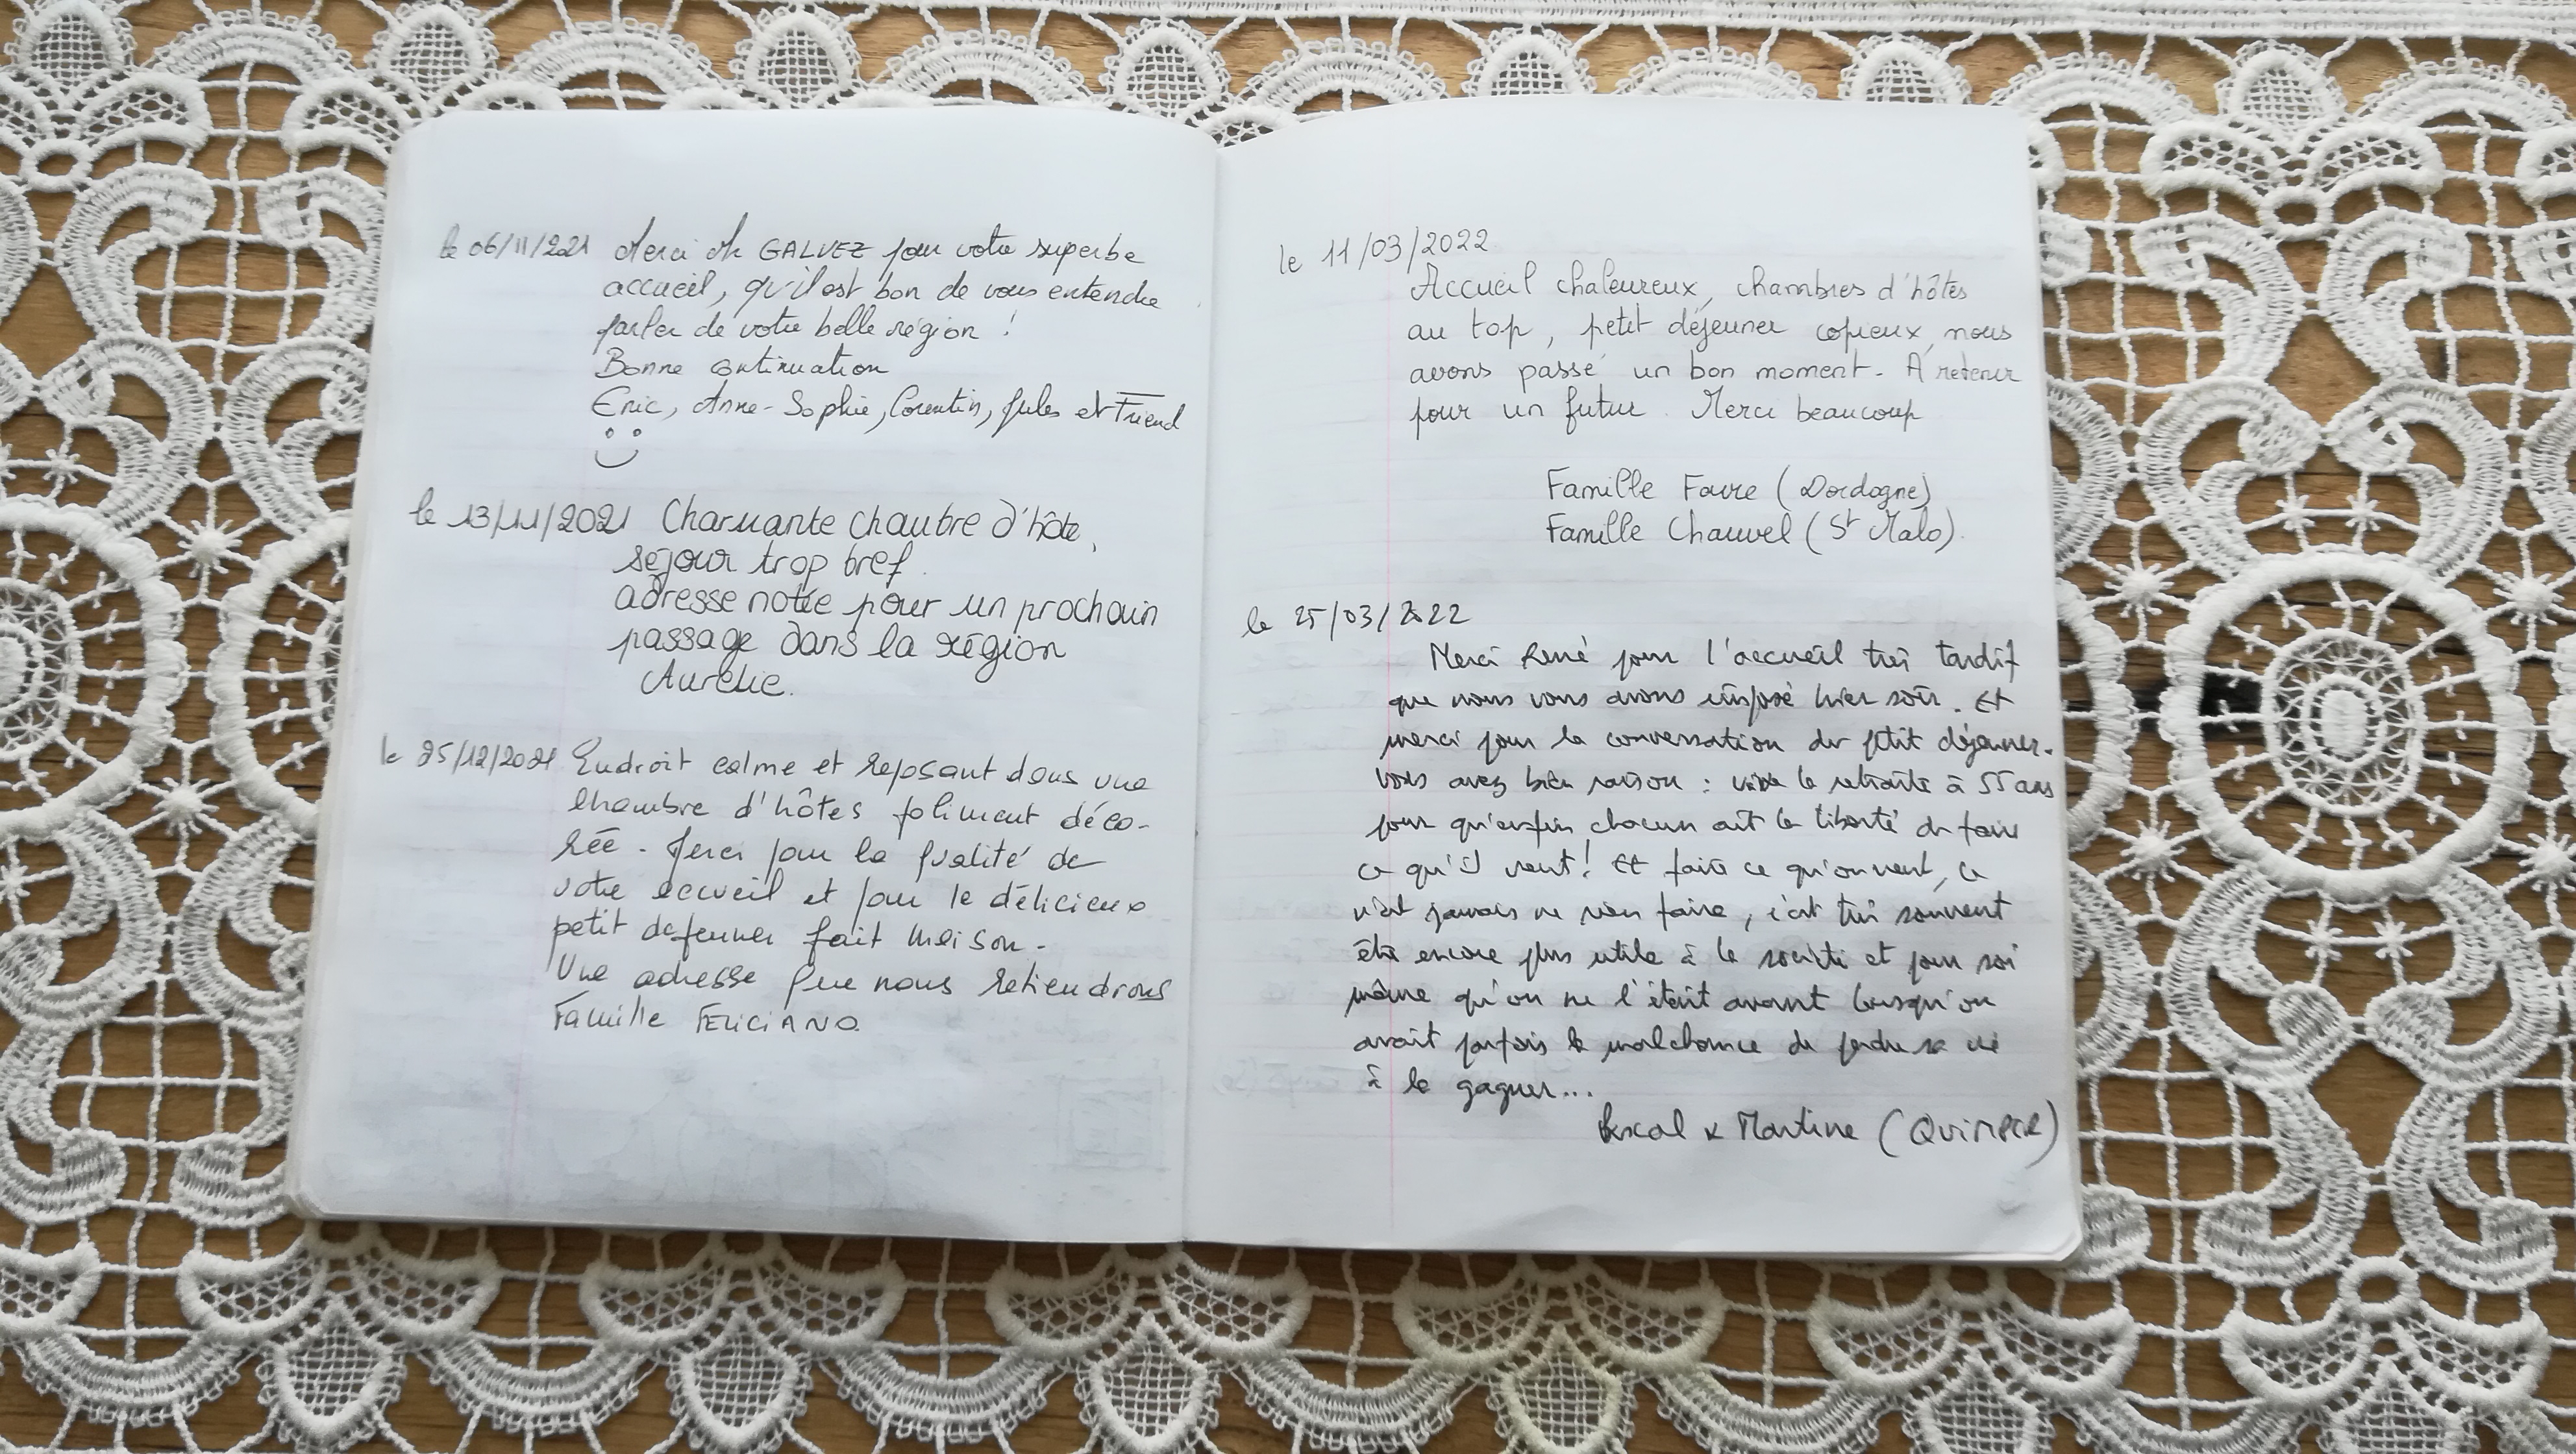 le 06/11/2021 Merci Mr GALVEZ pour votre superbe
accueil, qu'il est bon de vous entendre
parler de votre belle région !
Bonne continuation
Eric, Anne-Sophie, Corentin, Jules et Friend
le 13/11/2021 Charmante chambre d'hôte,
séjour trop bref.
adresse notée pour un prochain
passage dans la région
Aurélie.
le 25/12/2021 Endroit calme et reposant dans une
chambre d'hôtes joliment déco-
rée. Merci pour la qualité de
votre accueil et pour le délicieux
petit dejeuner fait maison.
Une adresse que nous retiendrons
Famille FELICIANO.
le 11/03/2022
Accueil chaleureux, chambres d'hôtes
au top, petit déjeuner copieux, nous
avons passé un bon moment. A retenir
pour un futur. Merci beaucoup
Famille Favre (Dordogne)
Famille Chauvel (St Malo).
le 25/03/2022
Merci René pour l'accueil très tardif
que nous vous avons imposé hier soir. Et
merci pour la conversation du petit déjeuner.
Vous avez bien raison : vive la retraite à 55 ans
pour qu'enfin chacun ait la liberté de faire
ce qu'il veut ! Et faire ce qu'on veut, ce
n'est jamais ne rien faire, c'est très souvent
être encore plus utile à la société et pour soi
même qu'on ne l'était avant lorsqu'on
avait parfois la malchance de perdre sa vie
à la gagner...
Pascal & Martine (QUIMPER)